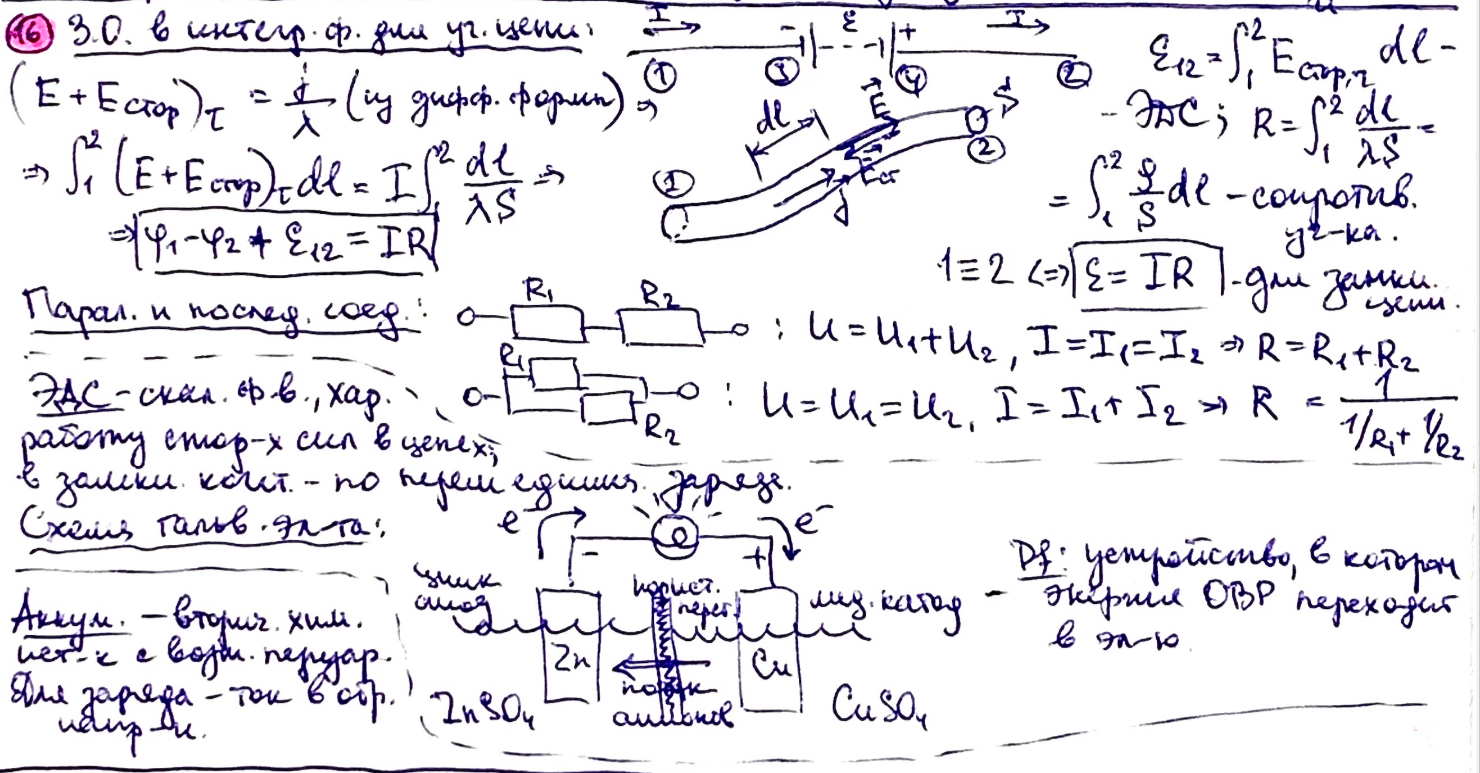 16 З.О. в интегр. ф. для уч. цепи:
I - ε + I
1 3 4 2
(E + Eстор)τ = j/λ (из дифф. формы) ⇒
⇒ ∫₁² (E + Eстор)τ dl = I ∫₁² dl/λS ⇒
⇒ φ₁ - φ₂ + ε₁₂ = IR
dl E S
1 Eст j 2
ε₁₂ = ∫₁² Eстор,τ dl -
- ЭДС; R = ∫₁² dl/λS =
= ∫₁² ρ/S dl - сопротив.
уч-ка.
1 ≡ 2 <=> ε = IR - для замкн.
цепи.
Парал. и послед. соед.:
R₁ R₂ : U = U₁ + U₂, I = I₁ = I₂ ⇒ R = R₁ + R₂
R₁ R₂ : U = U₁ = U₂, I = I₁ + I₂ ⇒ R = 1/(1/R₁ + 1/R₂)
ЭДС - скал. ф. в., хар.
работу стор-х сил в цепях;
в замкн. конт. - по перем единич. заряда.
Схема гальв. эл-та:
e⁻ - + e⁻
цинк
анод
порист.
перег.
мед. катод
Zn Cu
поток
анионов
ZnSO₄ CuSO₄
- Df: устройство, в котором
энергия ОВР переходит
в эл-ю
Аккум. - вторич. хим.
ист-к с возм. перезар.
Для заряда - ток в обр.
напр-и.